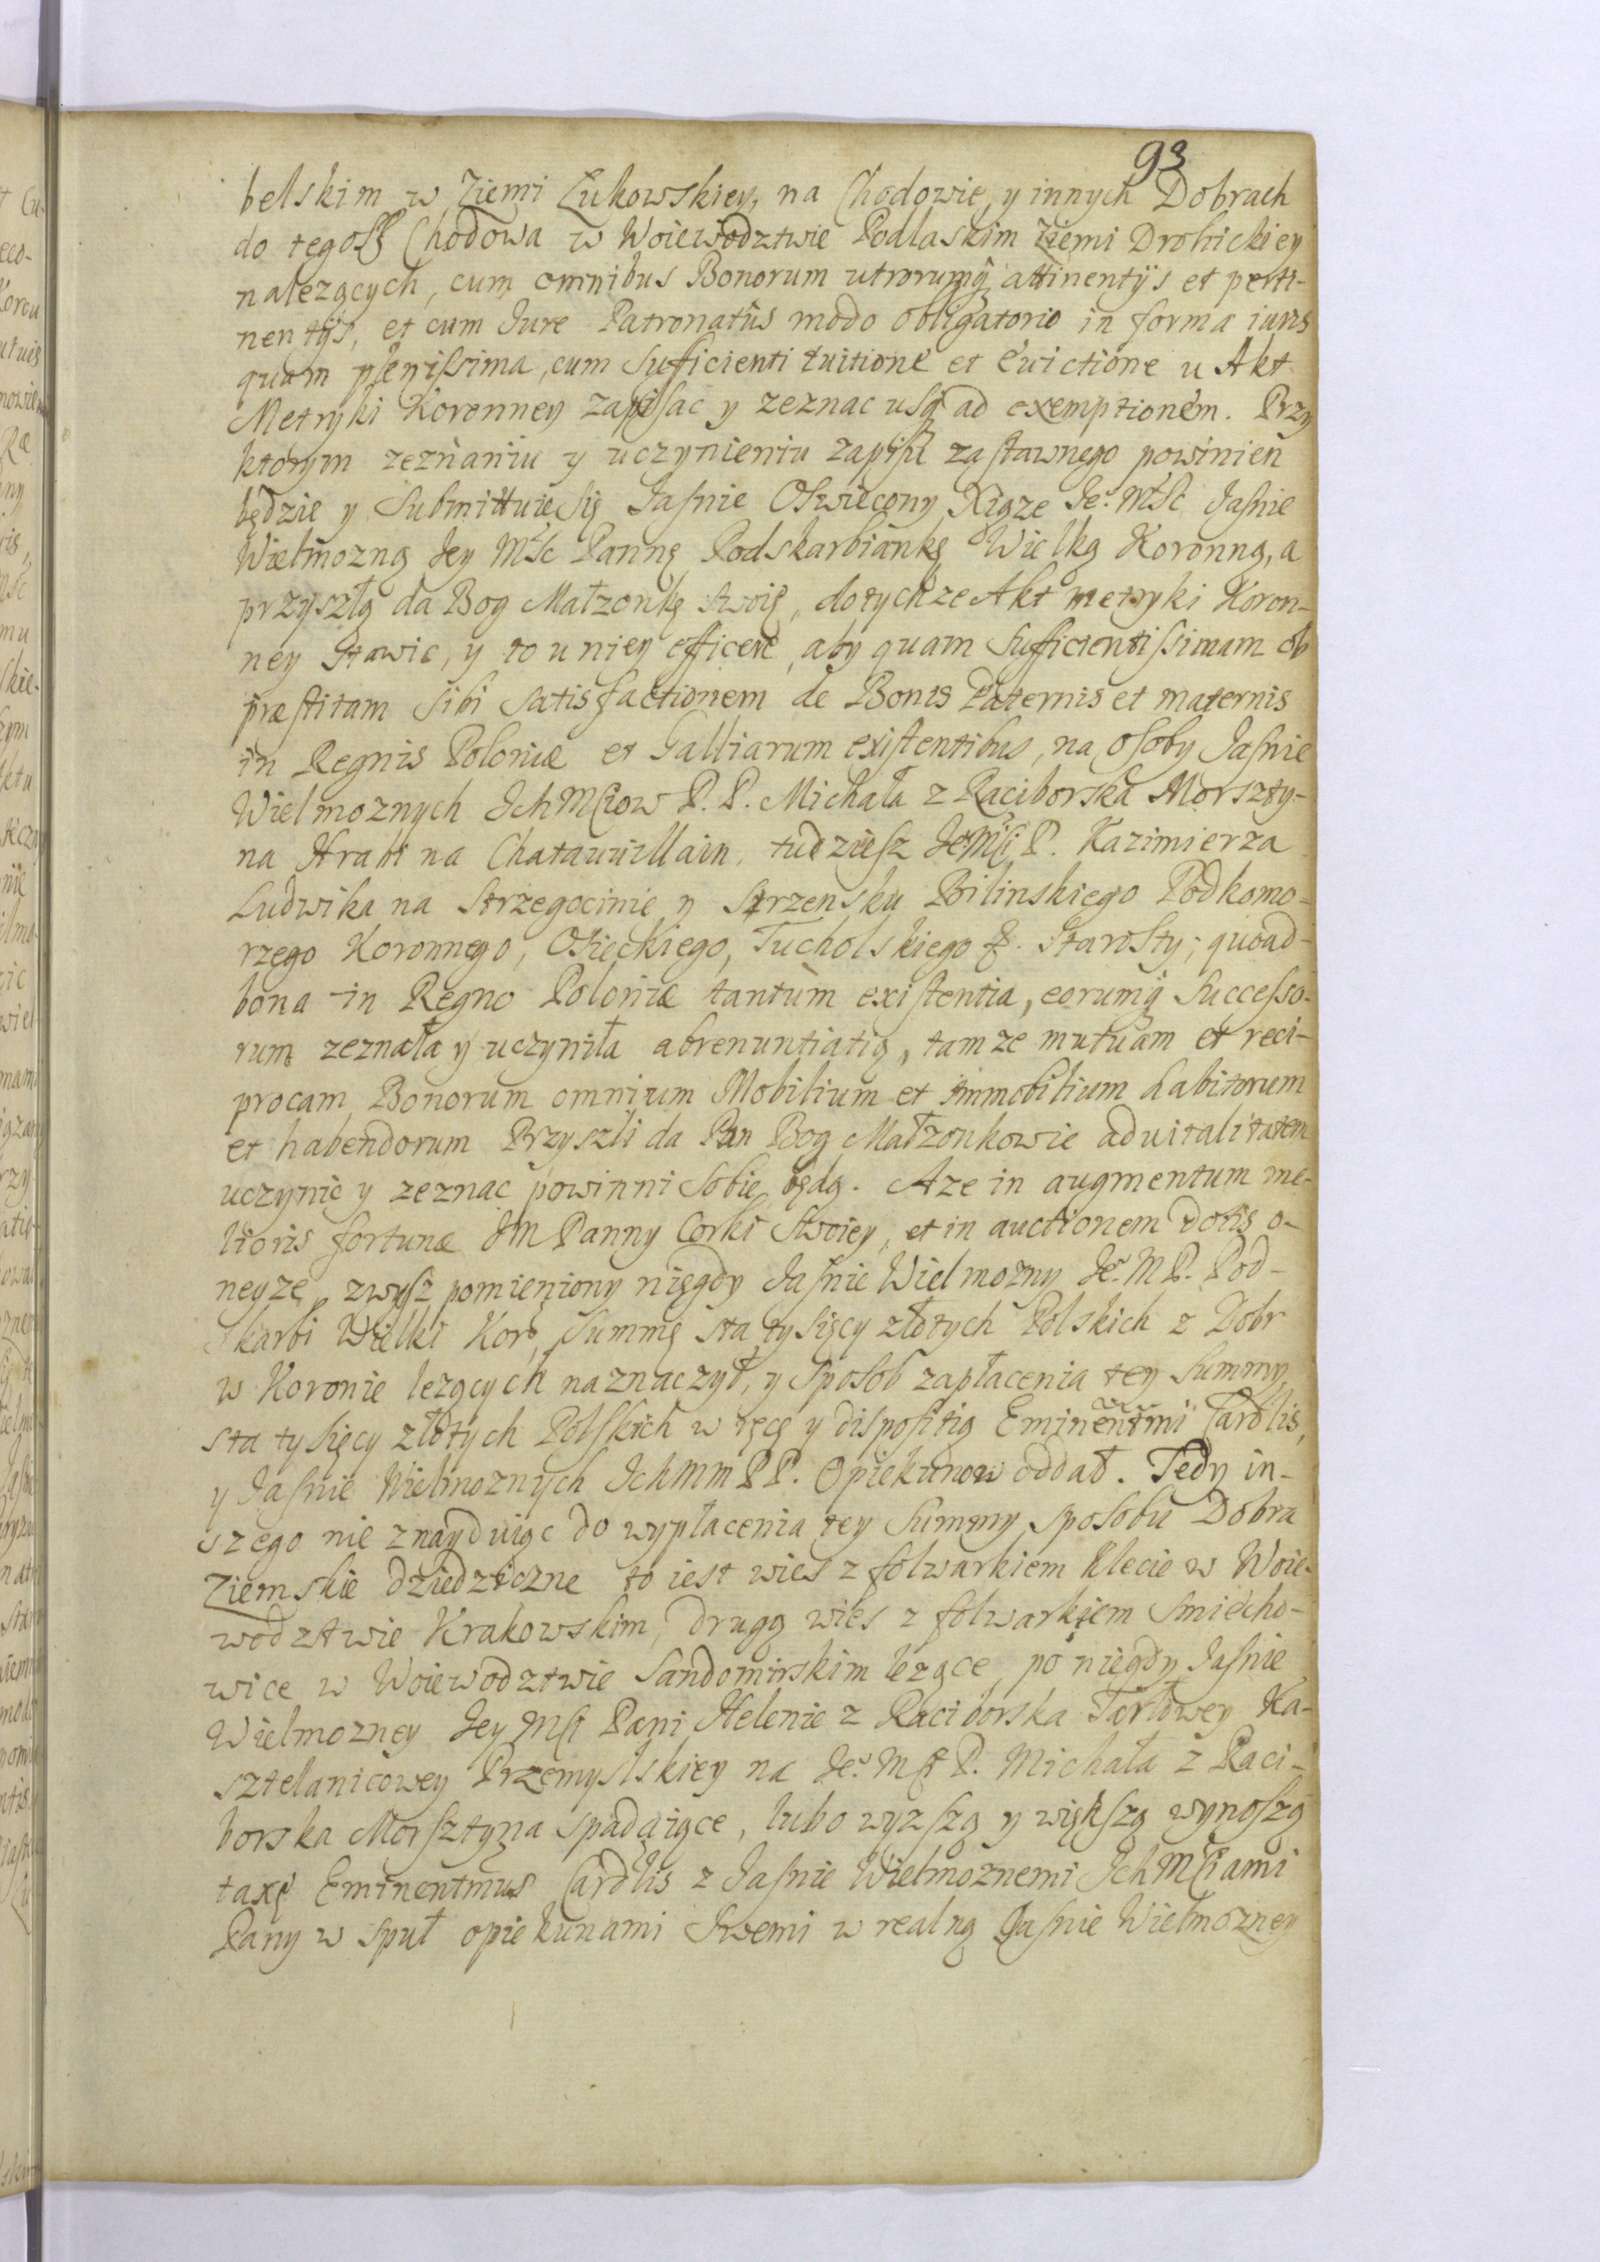 93
belskim w Ziemi Łukowskiey, na Chodowie, y innych Dobrach
do tegosz Chodowa w Woiewodztwie Podlaskim Ziemi Drohickiey
należących, cum omnibus Bonorum utrorumq; attinentÿs et perti-
nentÿs, et cum Jure Patronatûs modo obligatorio in forma iuris
quam plenissima, cum sufficienti tuitione et evictione u Akt
Metryki Koronney zapisac y zeznac usq; ad exemptionem. Przy
ktorym zeznaniu y uczynieniu zapisu zastawnego powinien
będzie y submittuie się Jasnie Oswiecony Xiąze Je˚. Msc Jasnie
Wielmozną Jey Msc Pannę Podskarbiankę Wielką Koronną, a
przyszłą da Bog Małzonkę swoię, dotychze Akt metryki Koron-
ney stawic, y to u niey efficere, aby quam sufficientissimam ob
præstitam sibi satisfactionem de Bonis Paternis et maternis
in Regnis Poloniæ et Galliarum existentibus, na osoby Jasnie
Wielmoznych JchMciow P. P. Michała z Raciborska Morszty-
na Hrabi na Chatauuillain, tudziesz JeMsci P. Kazimierza
Ludwika na Strzegocinie y Strzensku Bilinskiego Podkomo-
rzego Koronnego, Osieckiego, Tucholskiego &. Starosty; quoad
bona in Regno Poloniæ tantùm existentia, eorumq; Successo-
rum zeznała y uczyniła abrenuntiatią, tamze mutuam et reci-
procam Bonorum omnium Mobilium et Immobilium habitorum
et habendorum Przyszli da Pan Bog Małzonkowie advitalitatem
uczynic y zeznac powinni sobie będą. Aze in augmentum me-
lioris fortunæ JM Panny Corki swoiey, et in auctionem dotis o-
neyze, zwysz pomieniony niegdy Jasnie Wielmozny Je˚. M P. Pod-
skarbi Wielki Kor˚, Summę sta tysięcy złotych Polskich z Dobr
w Koronie lezących naznaczył, y sposob zapłacenia tey Summy
sta tysięcy złotych Polskich w ręcę y dispositią Eminentmi Cardlis,
y Jasnie Wielmoznych JchMM PP. Opiekunow oddał. Tedy in-
szego nie znayduiąc do wypłacenia tey Summy sposobu Dobra
Ziemskie dziedziczne to iest wies z folwarkiem Klecie w Woie-
wodztwie Krakowskim, drugą wies z folwarkiem Smiecho-
wice w Woiewodztwie Sandomirskim lezące, po niegdy Jasnie
Wielmozney Jey Msci Pani Helenie z Raciborska Tarłowey Ka-
sztelanicowey Przemyslskiey na Je˚. Msci P. Michała z Raci-
borska Morsztyna spadaiące, lubo wyzszą y większą wynoszą
taxę Eminentmus Cardlis z Jasnie Wielmoznemi JchMsciami
Pany w spuł opiekunami swemi w realną Jasnie Wielmozney